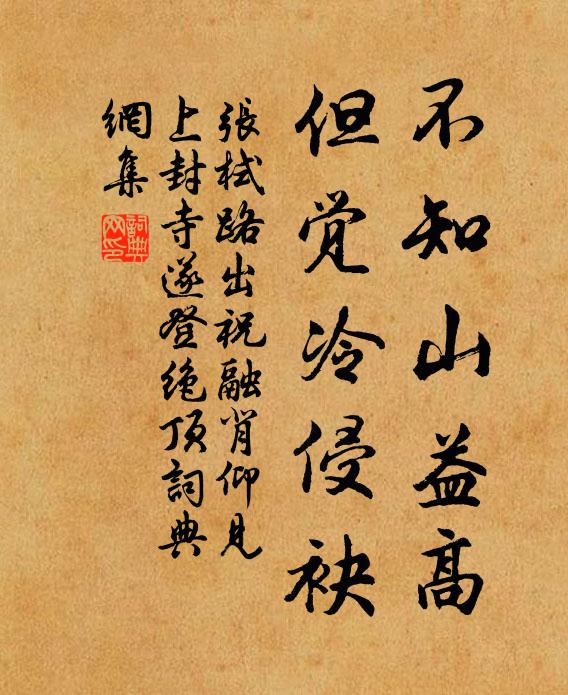 不知山益高
但觉冷侵袂
張栻路出祝融背仰見
上封寺遂登绝顶詞典
網集
詞典
网印